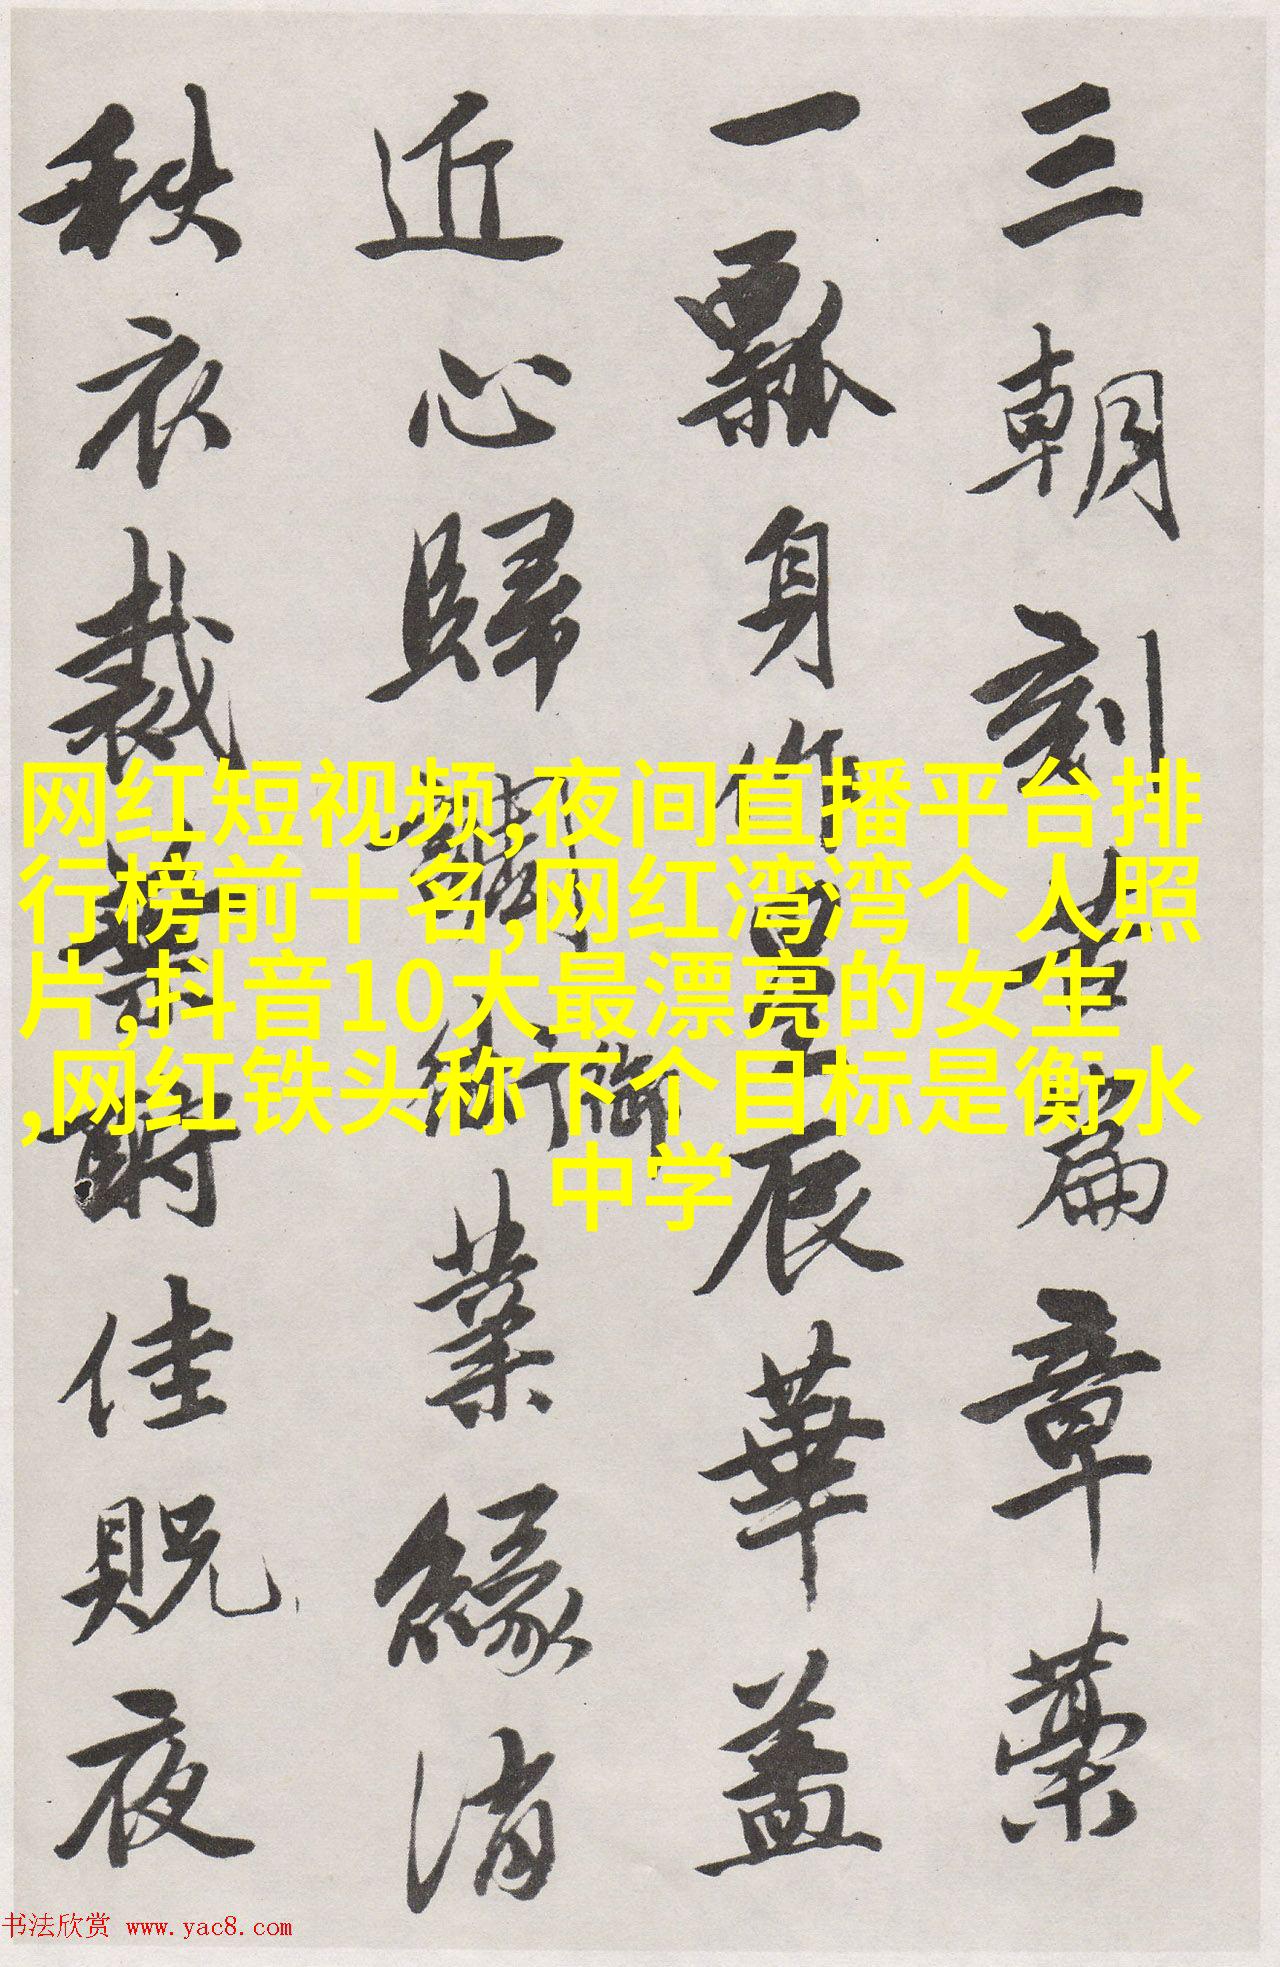 三朝刻苦篇章藁
一瓢身作星辰華蓋
近心歸業緣消
秩衣裁佳貺夜
网红短视频,夜间直播平台排
行榜前十名,网红湾湾个人照
片,抖音10大最漂亮的女生
,网红铁头称下个目标是衡水
中学
书法欣赏 www.yac8.com